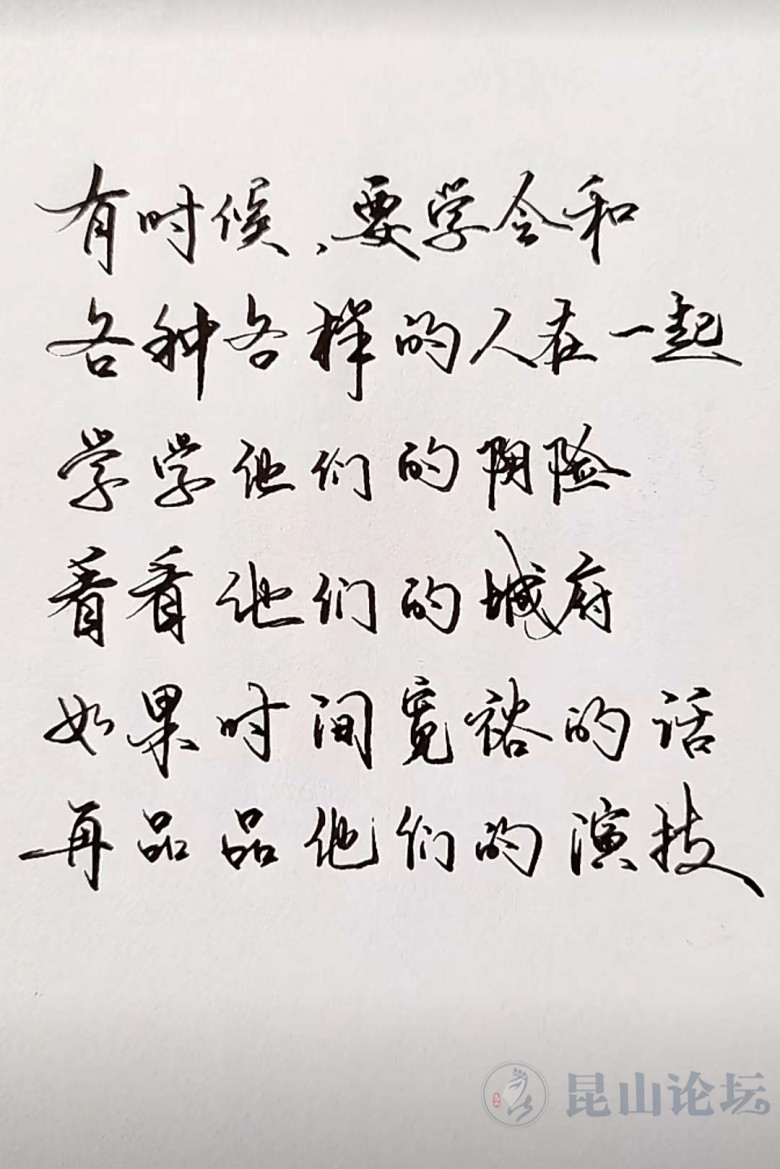 有时候、要学会和
各种各样的人在一起
学学他们的阴险
看看他们的城府
如果时间宽裕的话
再品品他们的演技
昆山论坛